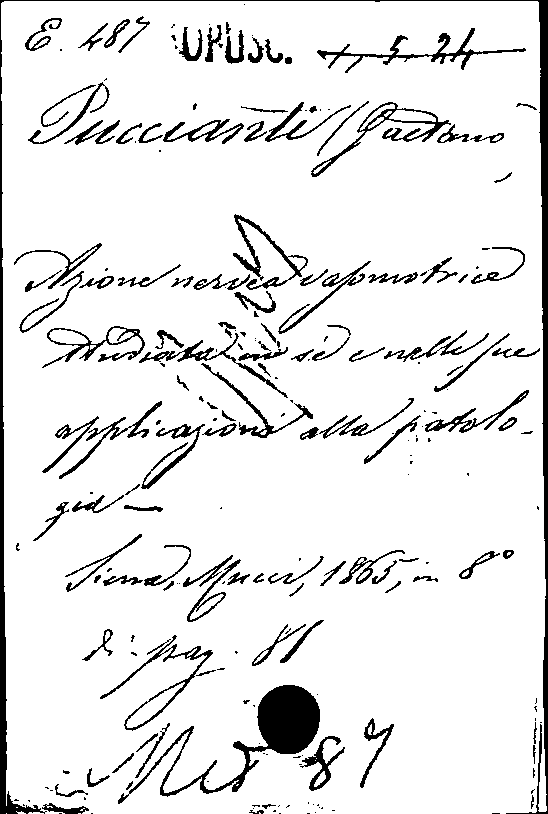 E. 487 OPUSC. 1, 5. 24
Puccianti (Gaetano
Azione nervea vasomotrice
studiata in sè e nelle sue
applicazioni alla patolo-
gia —
Siena, Mucci, 1865, in 8°
di pag. 81
87